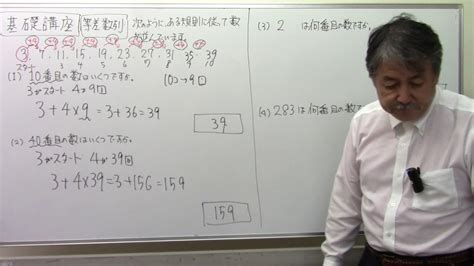 基礎講座(等差数列) 次のように、ある規則に従って数
が並んでいます。
+4 +4 +4 +4 +4 +4 +4 +4 +4
3, 7, 11, 15, 19, 23, 27, 31, 35, 39
スタート
(1) 10番目の数はいくつですか。
3がスタート 4が9回
10コ→9回
3+4×9=3+36=39
39
(2) 40番目の数はいくつですか。
3がスタート 4が39回
3+4×39=3+156=159
159
(3) 2 は何番目の数ですか。
(4) 283は何番目の数で